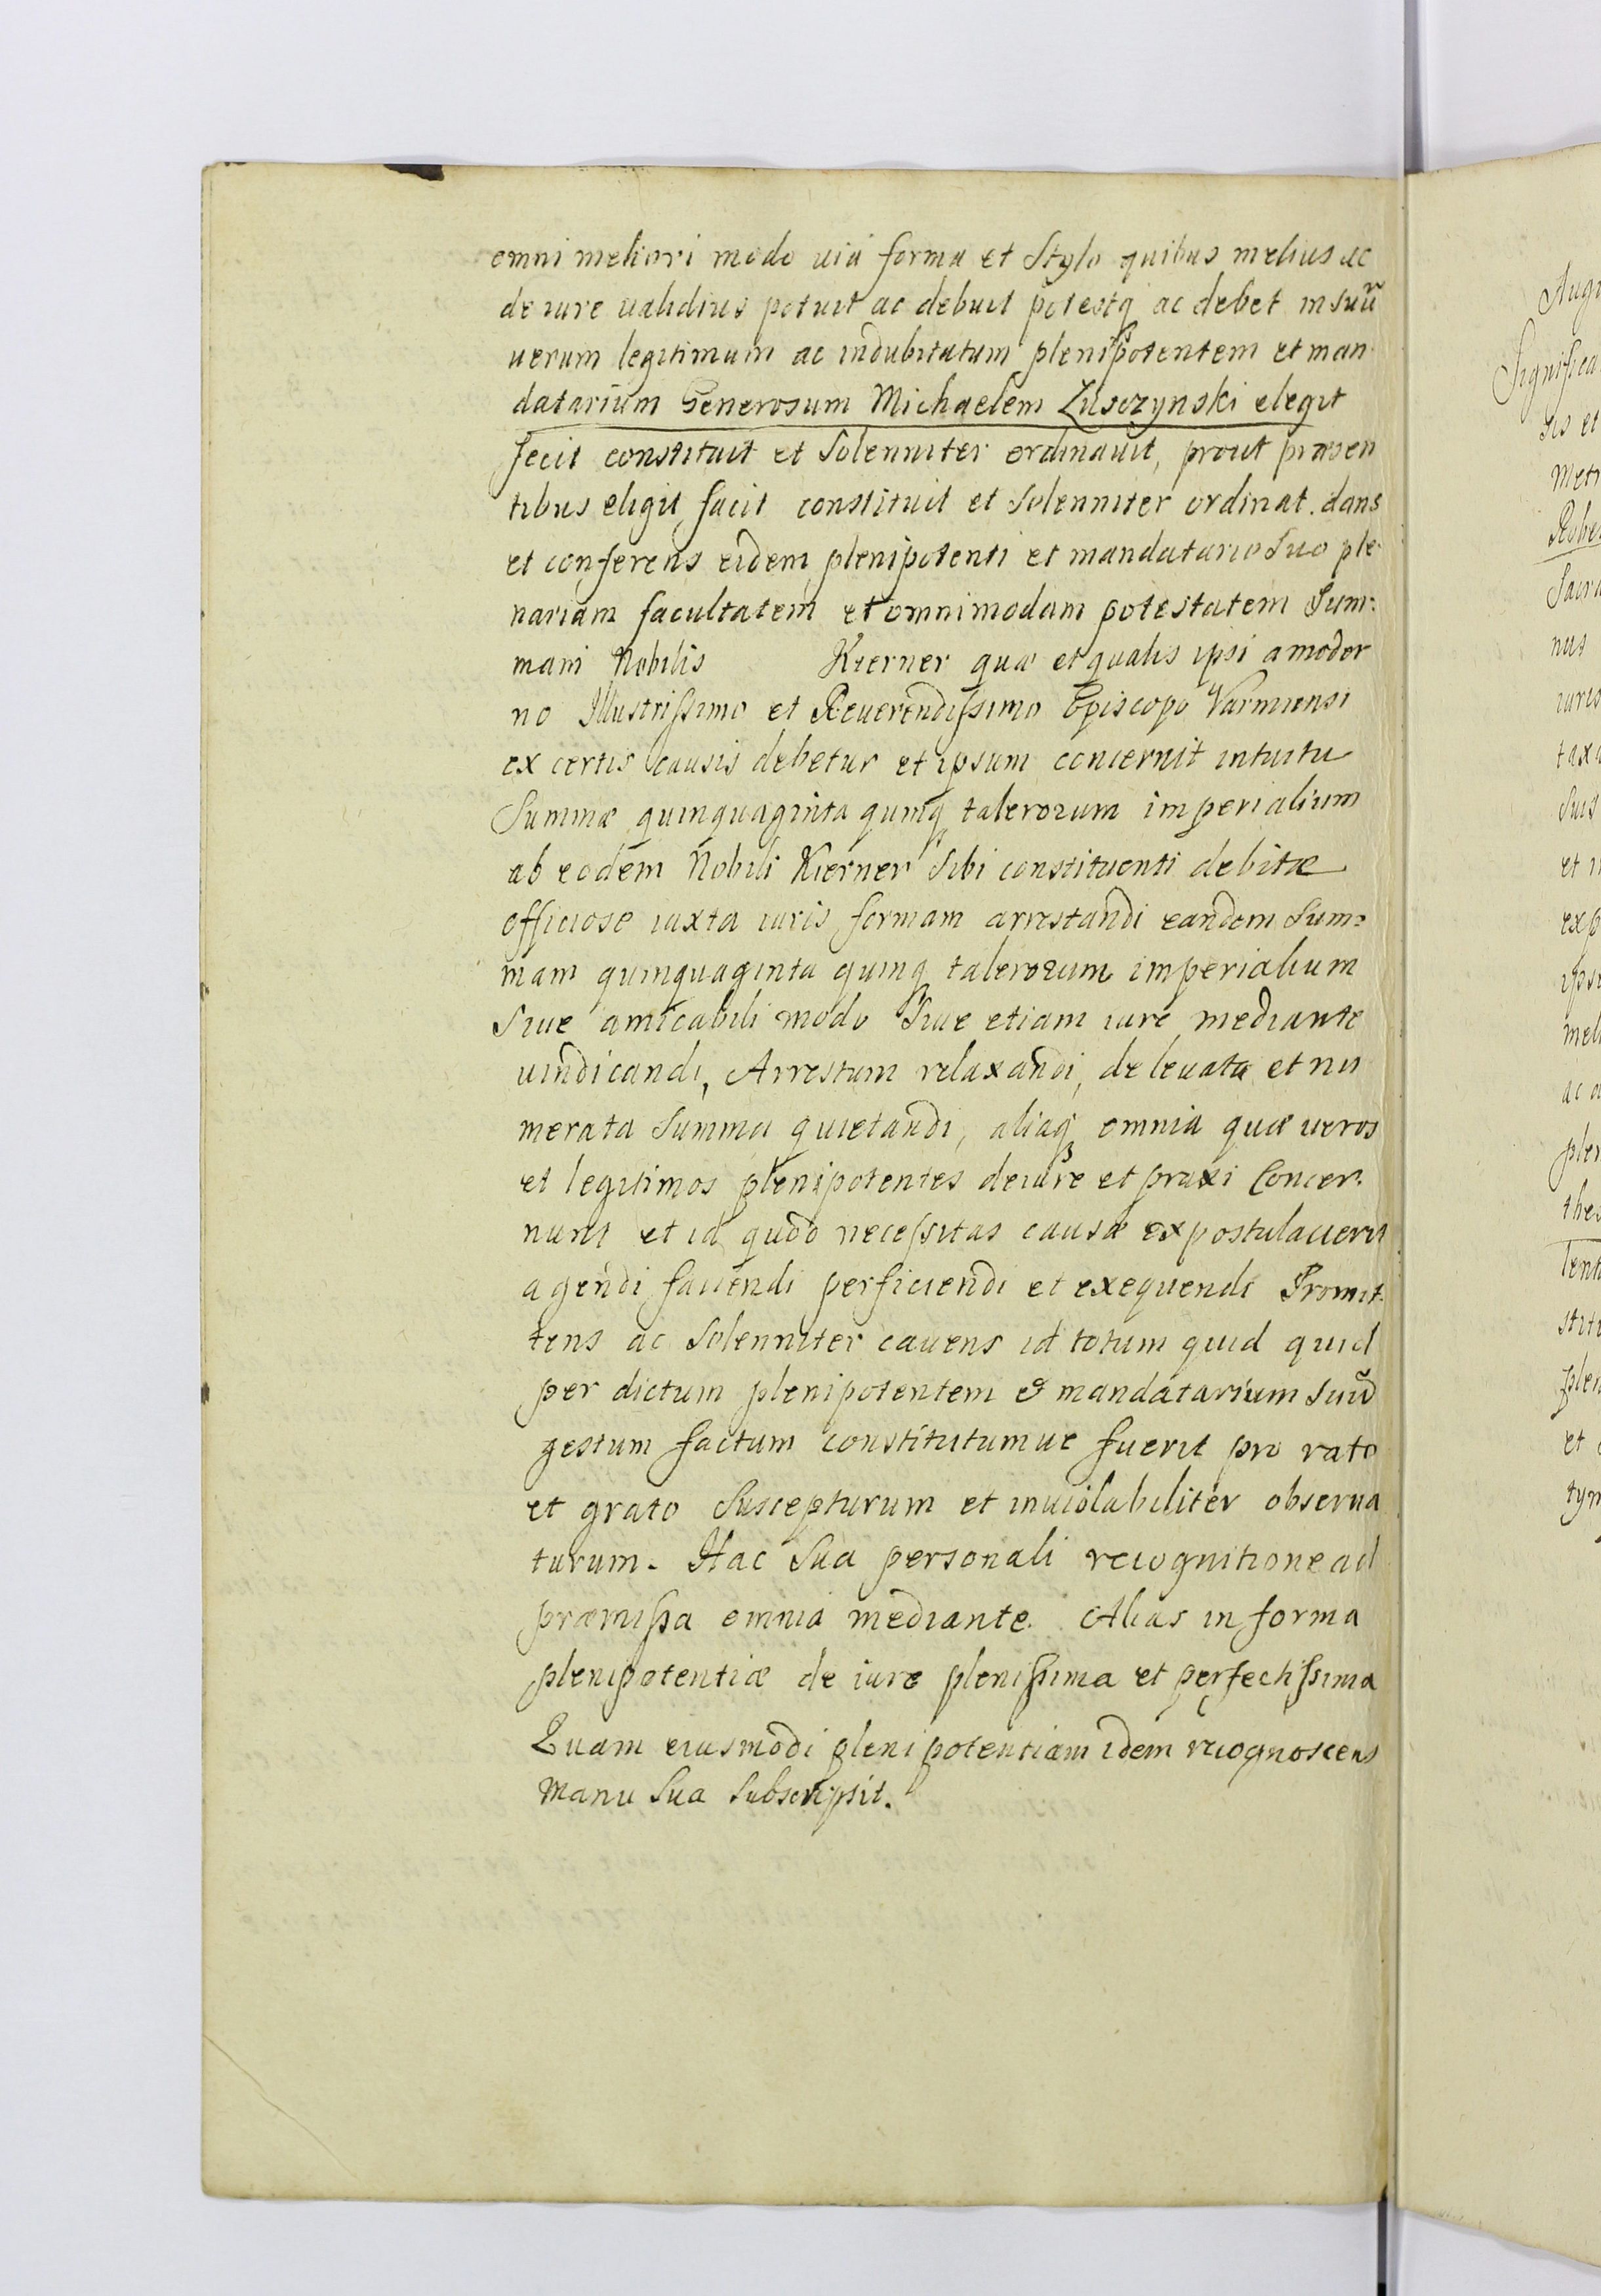 omni meliori modo uia forma et Stylo quibus melius ac
de iure ualidius potuit ac debuit potestq ac debet in suũ
uerum legitimum ac indubitatum plenipotentem et man
datarium Generosum Michaelem Zusczynski elegit
fecit constituit et Solenniter ordinauit, prout præsen
tibus eligit, facit constituit et Solenniter ordinat. dans
et conferens eidem plenipotenti et mandatario Suo ple-
nariam facultatem et omnimodam potestatem Sum-
mam Nobilis Kierner quæ et qualis ipsi a moder
no Illustrissimo et Reuerendissimo Episcopo Varmiensi
ex certis causis debetur et ipsum concernit intuitu
Summæ quinquaginta quinq talerorum imperialium
ab eodem Nobili Kierner Sibi constituenti debitæ
officiose iuxta iuris formam arrestandi eandem Sum=
mam quinquaginta quinq talerorum imperialium
Siue amicabili modo Siue etiam iure mediante
uindicandi, Arrestum relaxandi, de leuata et nu
merata Summa quietandi, aliaq omnia quæ ueros
et legitimos plenipotentes de iure et praxi Concer-
nunt et id quod necessitas causæ expostulauerit
agendi faciendi perficiendi et exequendi Promit-
tens ac Solenniter cauens id totum quid quid
per dictum plenipotentem & mandatarium Suũ
gestum factum constitutumue fuerit pro rato
et grato Suscepturum et inuiolabiliter obserua
turum. Hac Sua personali recognitione ad
præmissa omnia mediante. Alias in forma
plenipotentiæ de iure plenissima et perfectissima
Quam eiusmodi plenipotentiam idem recognoscens
manu Sua Subscripsit.